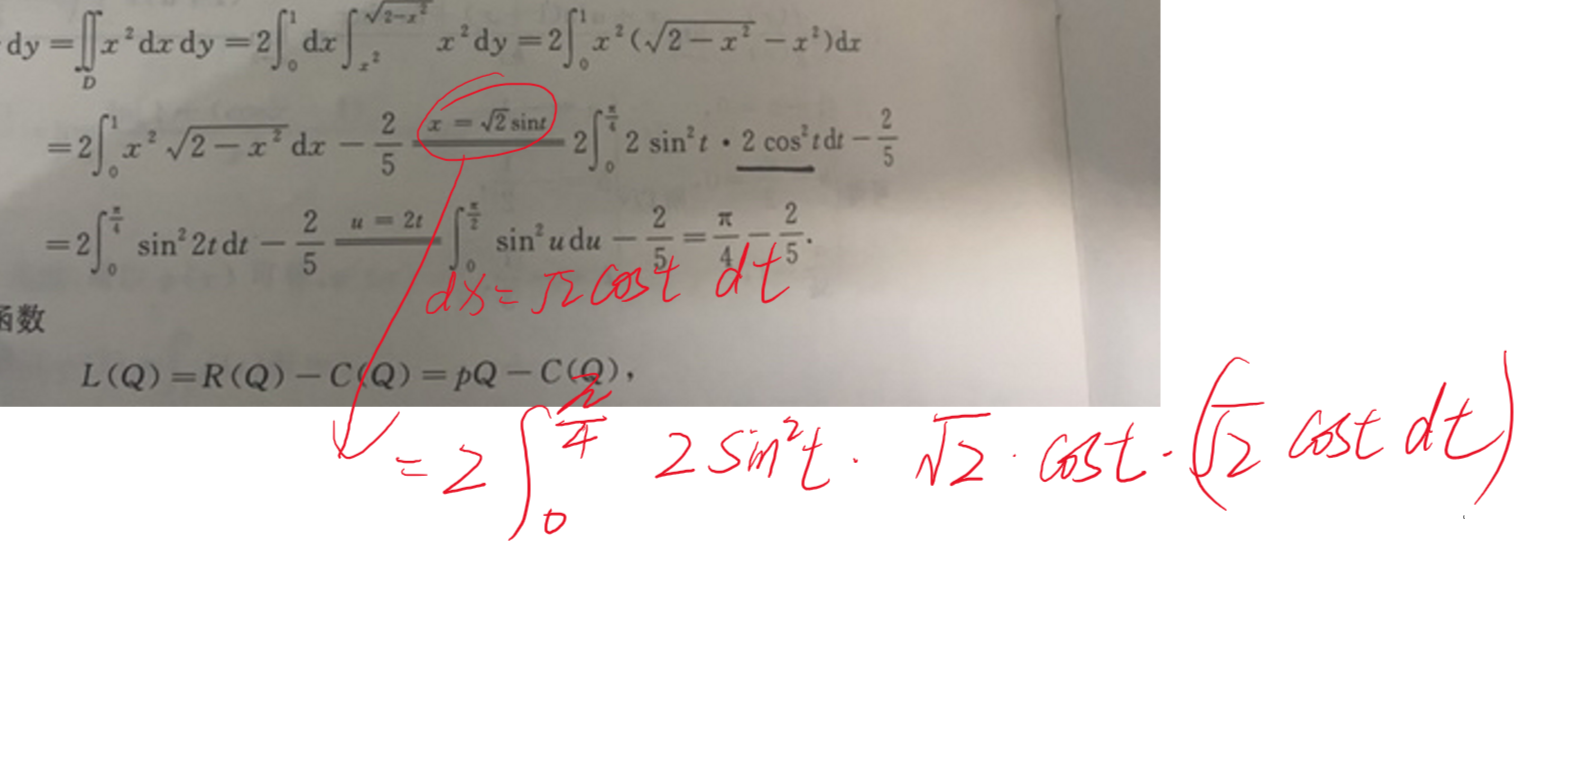 dy = ∬_D x² dx dy = 2∫₀¹ dx ∫_{x²}^{√(2−x²)} x² dy = 2∫₀¹ x² (√(2−x²) − x²) dx
= 2∫₀¹ x² √(2−x²) dx − 2/5 x = √2 sint 2∫₀^{π/4} 2 sin²t · 2 cos²t dt − 2/5
= 2∫₀^{π/4} sin²2t dt − 2/5 u = 2t ∫₀^{π/2} sin²u du − 2/5 = π/4 − 2/5.
dx = √2 cost dt
函数
L(Q) = R(Q) − C(Q) = pQ − C(Q),
= 2∫₀^{π/4} 2 sin²t · √2 · cost · (√2 cost dt)